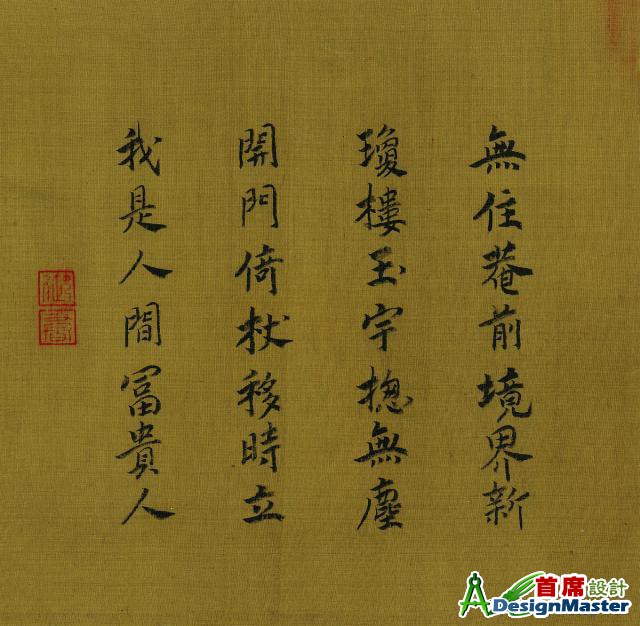 無住菴前境界新
瓊樓玉宇揔無塵
開門倚杖移時立
我是人間冨貴人
首席設計
DesignMaster